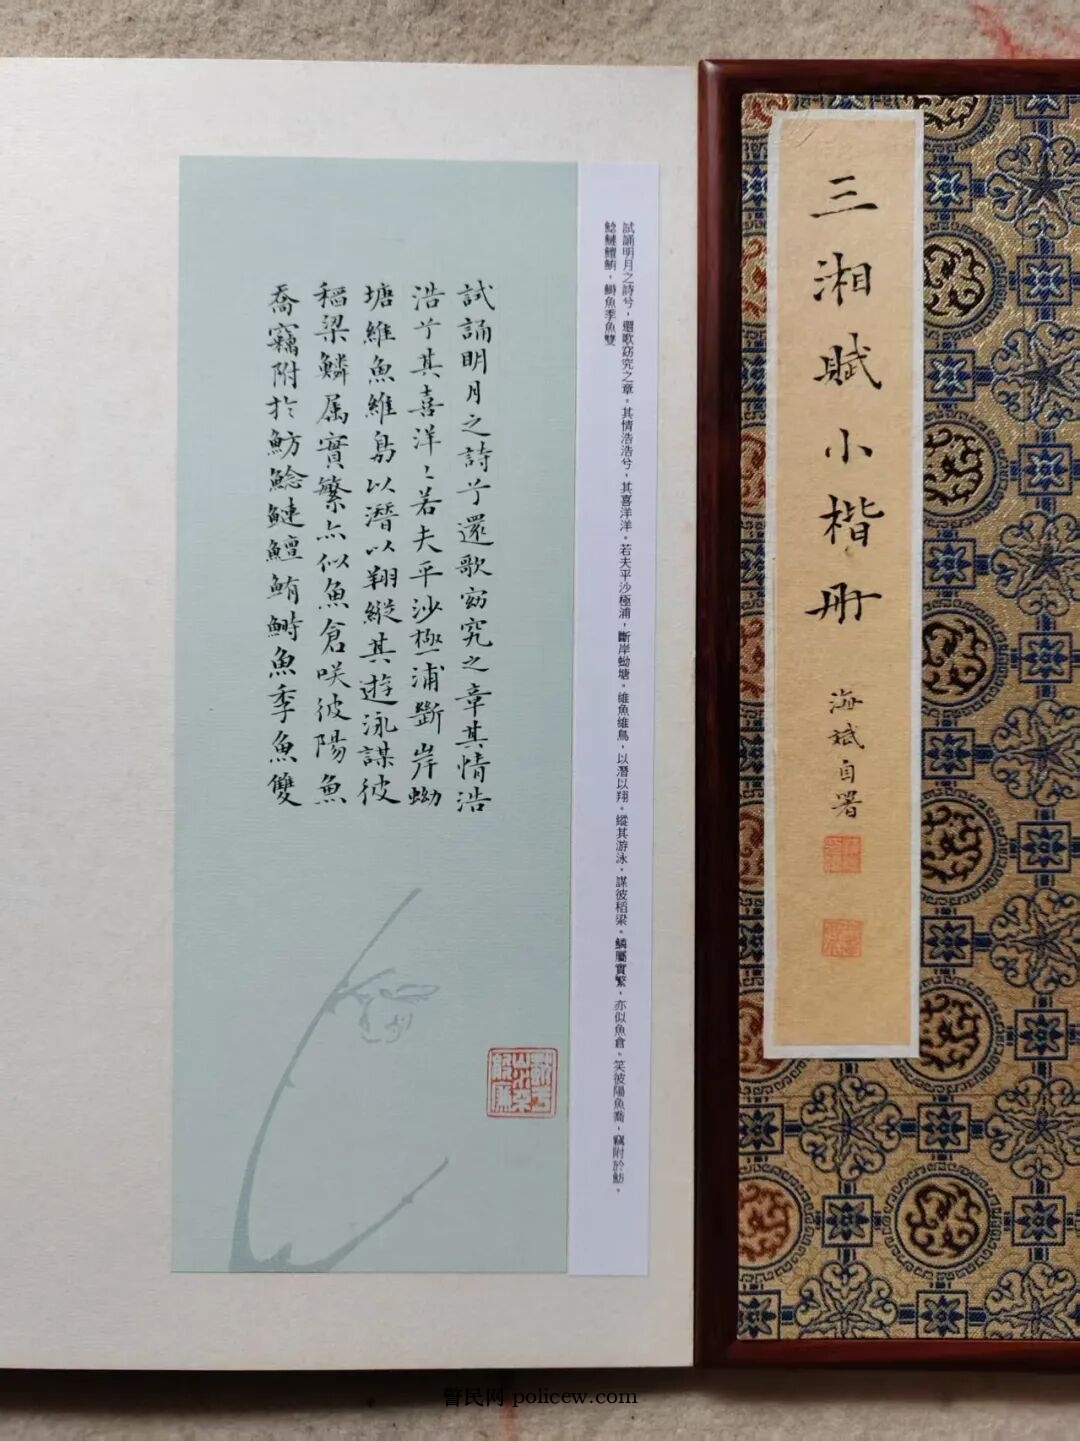 三湘賦小楷册
海斌自署
試誦明月之詩兮，還歌窈究之章。其情浩浩兮，其喜洋洋。若夫平沙極浦，斷岸蚴塘。維魚維鳥，以潛以翔。縱其游泳，謀彼稻梁。鱗屬實繁，亦似魚倉。笑彼陽魚喬，竊附於魴。
鯰鰱鱣鮪，鰣魚季魚雙
試誦明月之詩兮還歌窈究之章其情浩
浩兮其喜洋〻若夫平沙極浦斷岸蚴
塘維魚維鳥以潛以翔縱其遊泳謀彼
稻梁鱗属實繁亦似魚倉咲彼陽魚
喬竊附於魴鯰鰱鱣鮪鰣魚季魚雙
警民网 policew.com